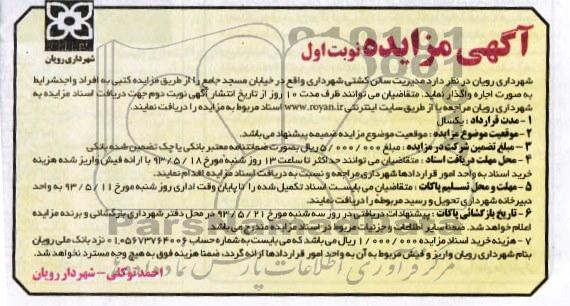 آگهی مزایده نوبت اول
شهرداری رویان
شهرداری رویان در نظر دارد مدیریت سالن کشتی شهرداری واقع در خیابان مسجد جامع را از طریق مزایده کتبی به افراد واجد شرایط
به صورت اجاره واگذار نماید. متقاضیان می توانند ظرف مدت ۱۰ روز از تاریخ انتشار آگهی نوبت دوم جهت دریافت اسناد مزایده به
شهرداری رویان مراجعه یا از طریق سایت اینترنتی www.royan.ir اسناد مربوط به مزایده را دریافت نمایند.
۱ - مدت قرارداد : یکسال
۲ - موقعیت موضوع مزایده : موقعیت موضوع مزایده ضمیمه پیشنهاد می باشد.
۳ - مبلغ تضمین شرکت در مزایده : مبلغ ۵/۰۰۰/۰۰۰ ریال بصورت ضمانتنامه معتبر بانکی یا چک تضمین شده بانکی
۴ - محل مهلت دریافت اسناد : متقاضیان می توانند حداکثر تا ساعت ۱۳ روز شنبه مورخ ۹۳/۵/۱۸ با ارائه فیش واریز شده هزینه
خرید اسناد به واحد امور قراردادها شهرداری مراجعه و نسبت به دریافت اسناد مزایده اقدام نمایند.
۵ - مهلت و محل تسلیم پاکات : متقاضیان می بایست اسناد تکمیل شده را تا پایان وقت اداری روز شنبه مورخ ۹۳/۵/۱۱ به واحد
دبیرخانه شهرداری تحویل و رسید مربوطه را دریافت نمایند.
۶ - تاریخ بازگشائی پاکات : پیشنهادات دریافتی در روز سه شنبه مورخ ۹۳/۵/۲۱ در محل دفتر شهرداری بازگشائی و برنده مزایده
اعلام خواهد شد. ضمنا سایر اطلاعات و جزئیات مربوط در اسناد مزایده مندرج می باشد
۷ - هزینه خرید اسناد مزایده ۱/۰۰۰/۰۰۰ ریال می باشد که می بایست به شماره حساب ۰۱۰۵۶۷۳۷۶۴۰۰۶ نزد بانک ملی رویان
بنام شهرداری رویان واریز و فیش مربوط به آن به واحد امور قراردادها ارائه گردد، ضمنا هزینه فوق به هیچ وجه مسترد نخواهد شد.
احمد توکلی - شهردار رویان